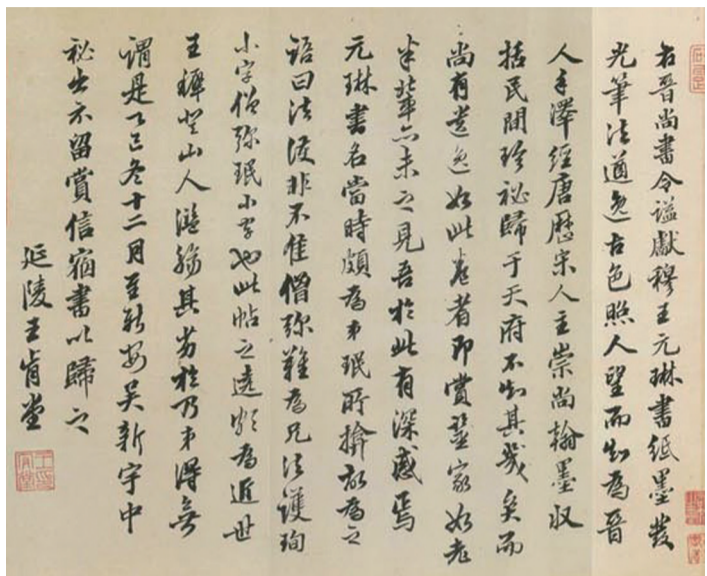 右晉尚書令諡獻穆王元琳書紙墨發
光筆法遒逸古色照人望而知為晉
人手澤經唐歷宋人主崇尚翰墨收
括民間珍秘歸于天府不知其幾矣而
尚有遺逸如此卷者即賞鑒家如老
米輩亦未之見吾於此有深感焉
元琳書名當時頗為弟珉所揜故為之
語曰法護非不佳僧彌難為兄法護珣
小字僧彌珉小字也此帖之遠為近世
王穉登山人濫觴其劣於乃弟得無
謂是乙巳冬十二月至新安吳新宇中
秘出示留賞信宿書以歸之
延陵王肯堂